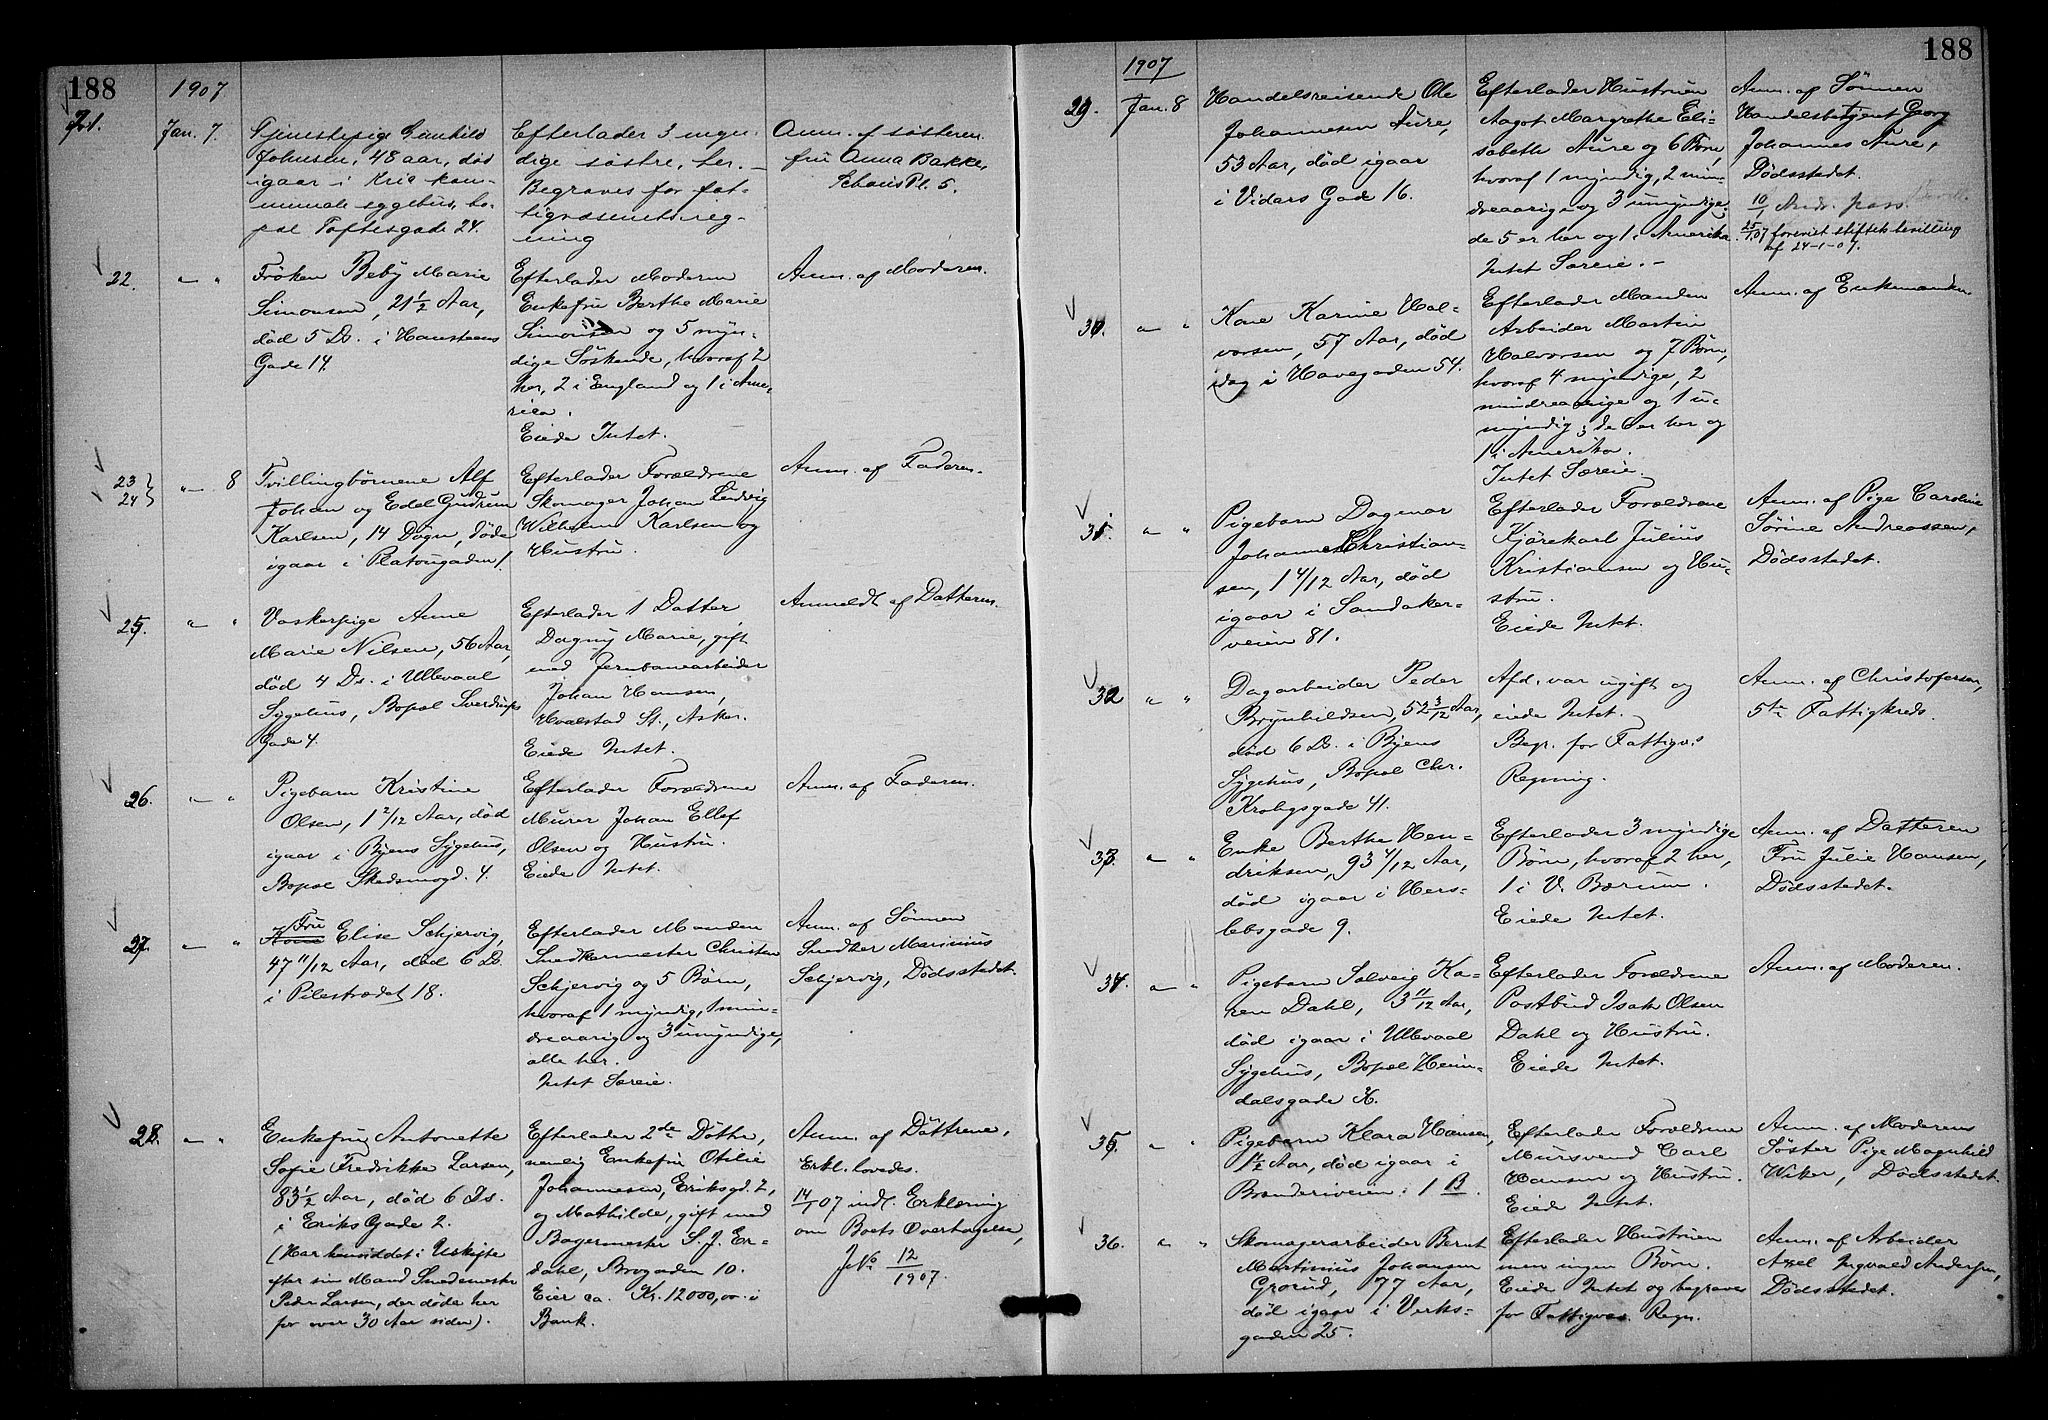 188
1907
21.
Jan. 7.
Tjenestepige Gunhild
Johnsen, 48 aar, død
igaar i Kria kom-
munale sygehus, bo-
pæl Toftesgade 24.
Efterlader 3 myn-
dige søstre, her. -
Begraves for fat-
tigvæsenets reg-
ning
Anm. af søsteren
fru Anna Bakke,
Schous Pl. 5.
22.
" "
Frøken Beby Marie
Simonsen, 21 1/2 Aar,
død 5 Ds. i Hansteens
Gade 14.
Efterlader Moderen
Enkefru Berthe Marie
Simonsen og 5 myn-
dige Søskende, hvoraf 2
her, 2 i England og 1 i Ame-
rica.
Eiede Intet.
Anm. af Moderen.
23
24
" 8
Tvillingbørnene Alf
Johan og Edel Gudrun
Karlsen, 14 Døgn, døde
igaar i Platougaden 1.
Efterlader Forældrene
Skomager Johan Ludvig
Wilhelm Karlsen og
Hustru.
Anm. af Faderen.
25.
" "
Vaskepige Anne
Marie Nilsen, 56 Aar,
død 4 Ds. i Ullevaal
Sygehus, Bopæl Sverdrups
Gade 4.
Efterlader 1 Datter
Dagny Marie, gift
med Jernbanearbeider
Johan Hansen,
Hvalstad St., Asker.
Eiede Intet.
Anmeldt af Datteren.
26.
" "
Pigebarn Kristine
Olsen, 1 2/12 Aar, død
igaar i Byens Sygehus,
Bopæl Skedsmogd. 4.
Efterlader Forældrene
Murer Johan Ellef
Olsen og Hustru.
Eiede Intet.
Anm. af Faderen.
27.
" "
Fru
Kone Elise Schjervig,
47 11/12 Aar, død 6 Ds.
i Pilestrædet 18.
Efterlader Manden
Snedkermester Christen
Schjervig og 5 Børn,
hvoraf 1 myndig, 1 min-
dreaarig og 3 umyndige,
alle her.
Intet Særeie.
Anm. af Sønnen
Snedker Marinius
Schjervig, Dødsstedet.
28.
" "
Enkefru Antonette
Sofie Fredrikke Larsen,
83 1/2 Aar, død 6 Ds.
i Eriks Gade 2.
(Har hensiddet i Uskifte
efter sin Mand Smedemester
Peder Larsen, der døde her
for over 30 Aar siden).
Efterlader 2de Døtre,
nemlig Enkefru Otilie
Johannesen, Eriksgd. 2,
og Mathilde, gift med
Bagermester S. J. Er-
dahl, Brogaden 10.
Eier ca. Kr. 12000,00 i
Bank.
Anm. af Døttrene,
Erkl. lovedes.
14/1 07 indl. Erklæring
om Boets Overtagelse,
J No 12/1907.
188
1907
29.
Jan. 8
Handelsreisende Ole
Johannesen Aure,
53 Aar, død igaar
i Vidars Gade 16.
Efterlader Hustruen
Aagot Margrethe Eli-
sabeth Aure og 6 Børn,
hvoraf 1 myndig, 2 min-
dreaarige og 3 umyndige,
de 5 er her og 1 i Amerika.
Intet Særeie. -
Anm. af Sønnen
Handelsbetjent Georg
Johannes Aure,
Dødsstedet.
10/1 Andr. pass.
25/1 07 forevist stiftets bevilling
af 24-1-07.
30.
" "
Kone Karine Hal-
vorsen, 57 Aar, død
idag i Havegaden 54.
Efterlader Manden
Arbeider Martin
Halvorsen og 7 Børn,
hvoraf 4 myndige, 2
mindreaarige og 1 u-
myndig; de 6 er her og
1 i Amerika.
Intet Særeie.
Anm. af Enkemanden.
31.
" "
Pigebarn Dagmar
Johanne Christian-
sen, 1 4/12 Aar, død
igaar i Sandaker-
veien 81.
Efterlader Forældrene
Kjørekarl Julius
Kristiansen og Hu-
stru.
Eiede Intet.
Anm. af Pige Caroline
Sørine Andreassen,
Dødsstedet.
32
" "
Dagarbeider Peder
Brynhildsen, 52 3/12 Aar,
død 6 Ds. i Byens
Sygehus, Bopæl Chr.
Krohgsgade 41.
Afd. var ugift og
eiede Intet.
Begr. for Fattigv.s
Regning.
Anm. af Christofersen,
5te Fattigkreds.
33.
" "
Enke Berthe Hen-
driksen, 93 4/12 Aar,
død igaar i Hers-
lebsgade 9.
Efterlader 3 myndige
Børn, hvoraf 2 her,
1 i V. Bærum.
Eiede Intet.
Anm. af Datteren
Fru Julie Hansen,
Dødsstedet.
34.
" "
Pigebarn Solveig Ka-
ren Dahl, 3 11/12 Aar,
død igaar i Ullevaal
Sygehus, Bopæl Heim-
dalsgade
Efterlader Forældrene
Postbud Isak Olsen
Dahl og Hustru.
Eiede Intet.
Anm. af Moderen.
35.
" "
Pigebarn Klara Hansen,
1 1/2 Aar, død igaar i
Brænneriveien 1 B.
Efterlader Forældrene
Mursvend Carl
Hansen og Hustru.
Eiede Intet.
Anm. af Moderens
Søster Pige Magnhild
Wiker, Dødsstedet.
36.
" "
Skomagerarbeider Bernt
Martinius Johansen
Grorud, 77 Aar,
død igaar i Verks-
gaden 25.
Efterlader Hustruen
men ingen Børn.
Eiede Intet og begraves
for Fattigvæs. Regn.
Anm. af Arbeider
Axel Ingvald Andersen,
Dødsstedet.